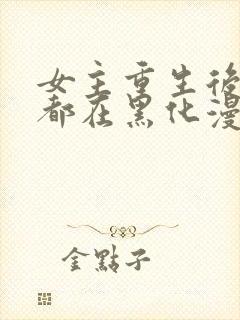 女主重生後
都在黑化漫
金點子